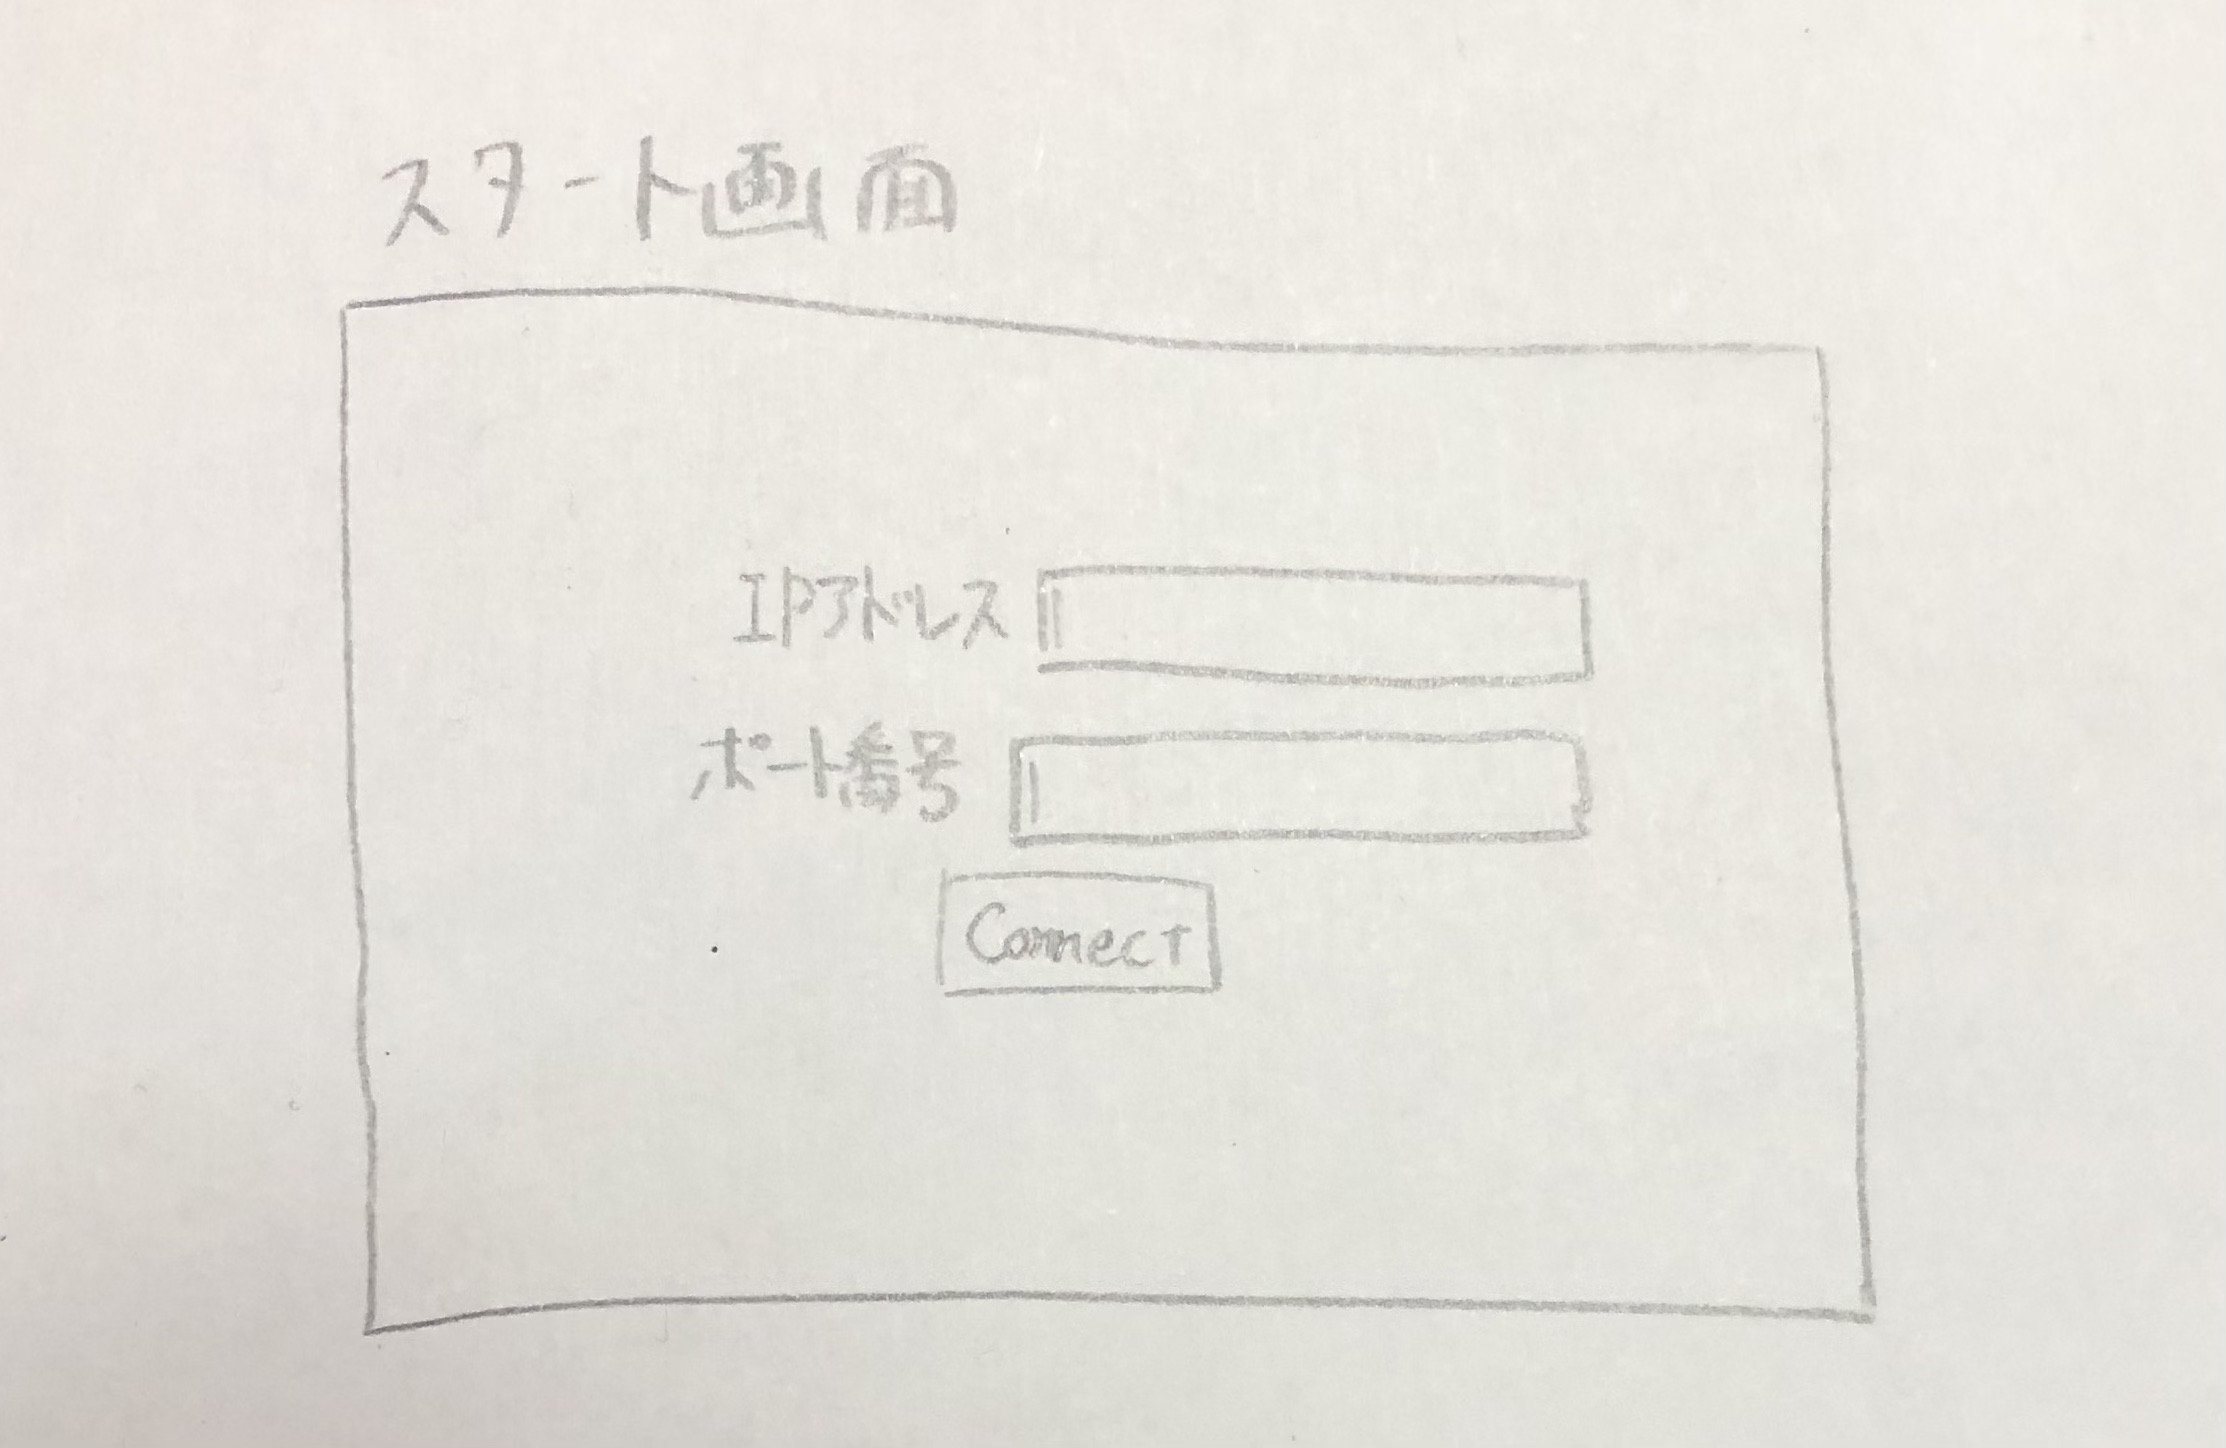 スタート画面
IPアドレス
ポート番号
Connect